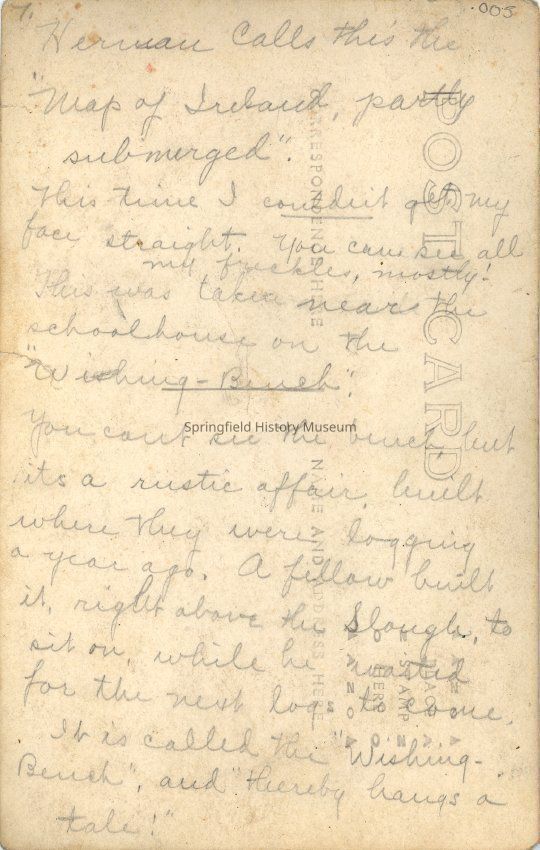 7.
.005
Herman calls this the
"Map of Ireland, partly
submerged".
This time I couldn't get my
face straight. You can see all
my freckles, mostly!
This was taken near the
schoolhouse on the
"Wishing-Bench".
You cant see the bench, but
its a rustic affair, built
where they were logging
a year ago. A fellow built
it, right above the Slough, to
sit on, while he waited
for the next logs to come.
It is called the "Wishing-
Bench", and "thereby hangs a
tale!"
POST CARD
CORRESPONDENCE HERE
NAME AND ADDRESS HERE
PLACE
STAMP
HERE
Springfield History Museum